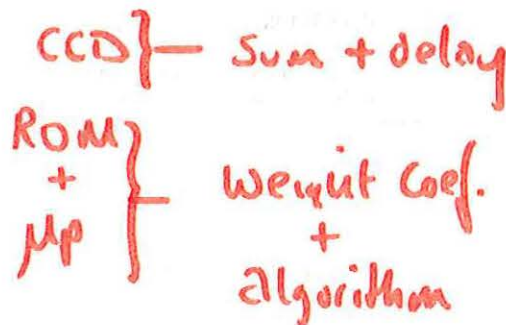 CCD} — Sum + delay
ROM
+
μp
} — Weight Coef.
+
algorithm